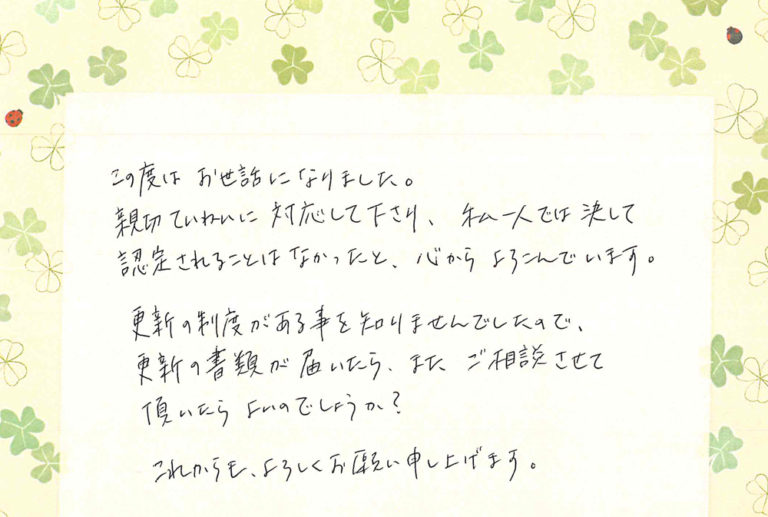 この度は お世話になりました。
親切ていねいに 対応して下さり、 私一人では 決して
認定されることは なかったと、心から よろこんでいます。
更新の制度がある事を知りませんでしたので、
更新の書類が 届いたら、また ご相談させて
頂いたら よいのでしょうか?
これからも、よろしくお願い申し上げます。